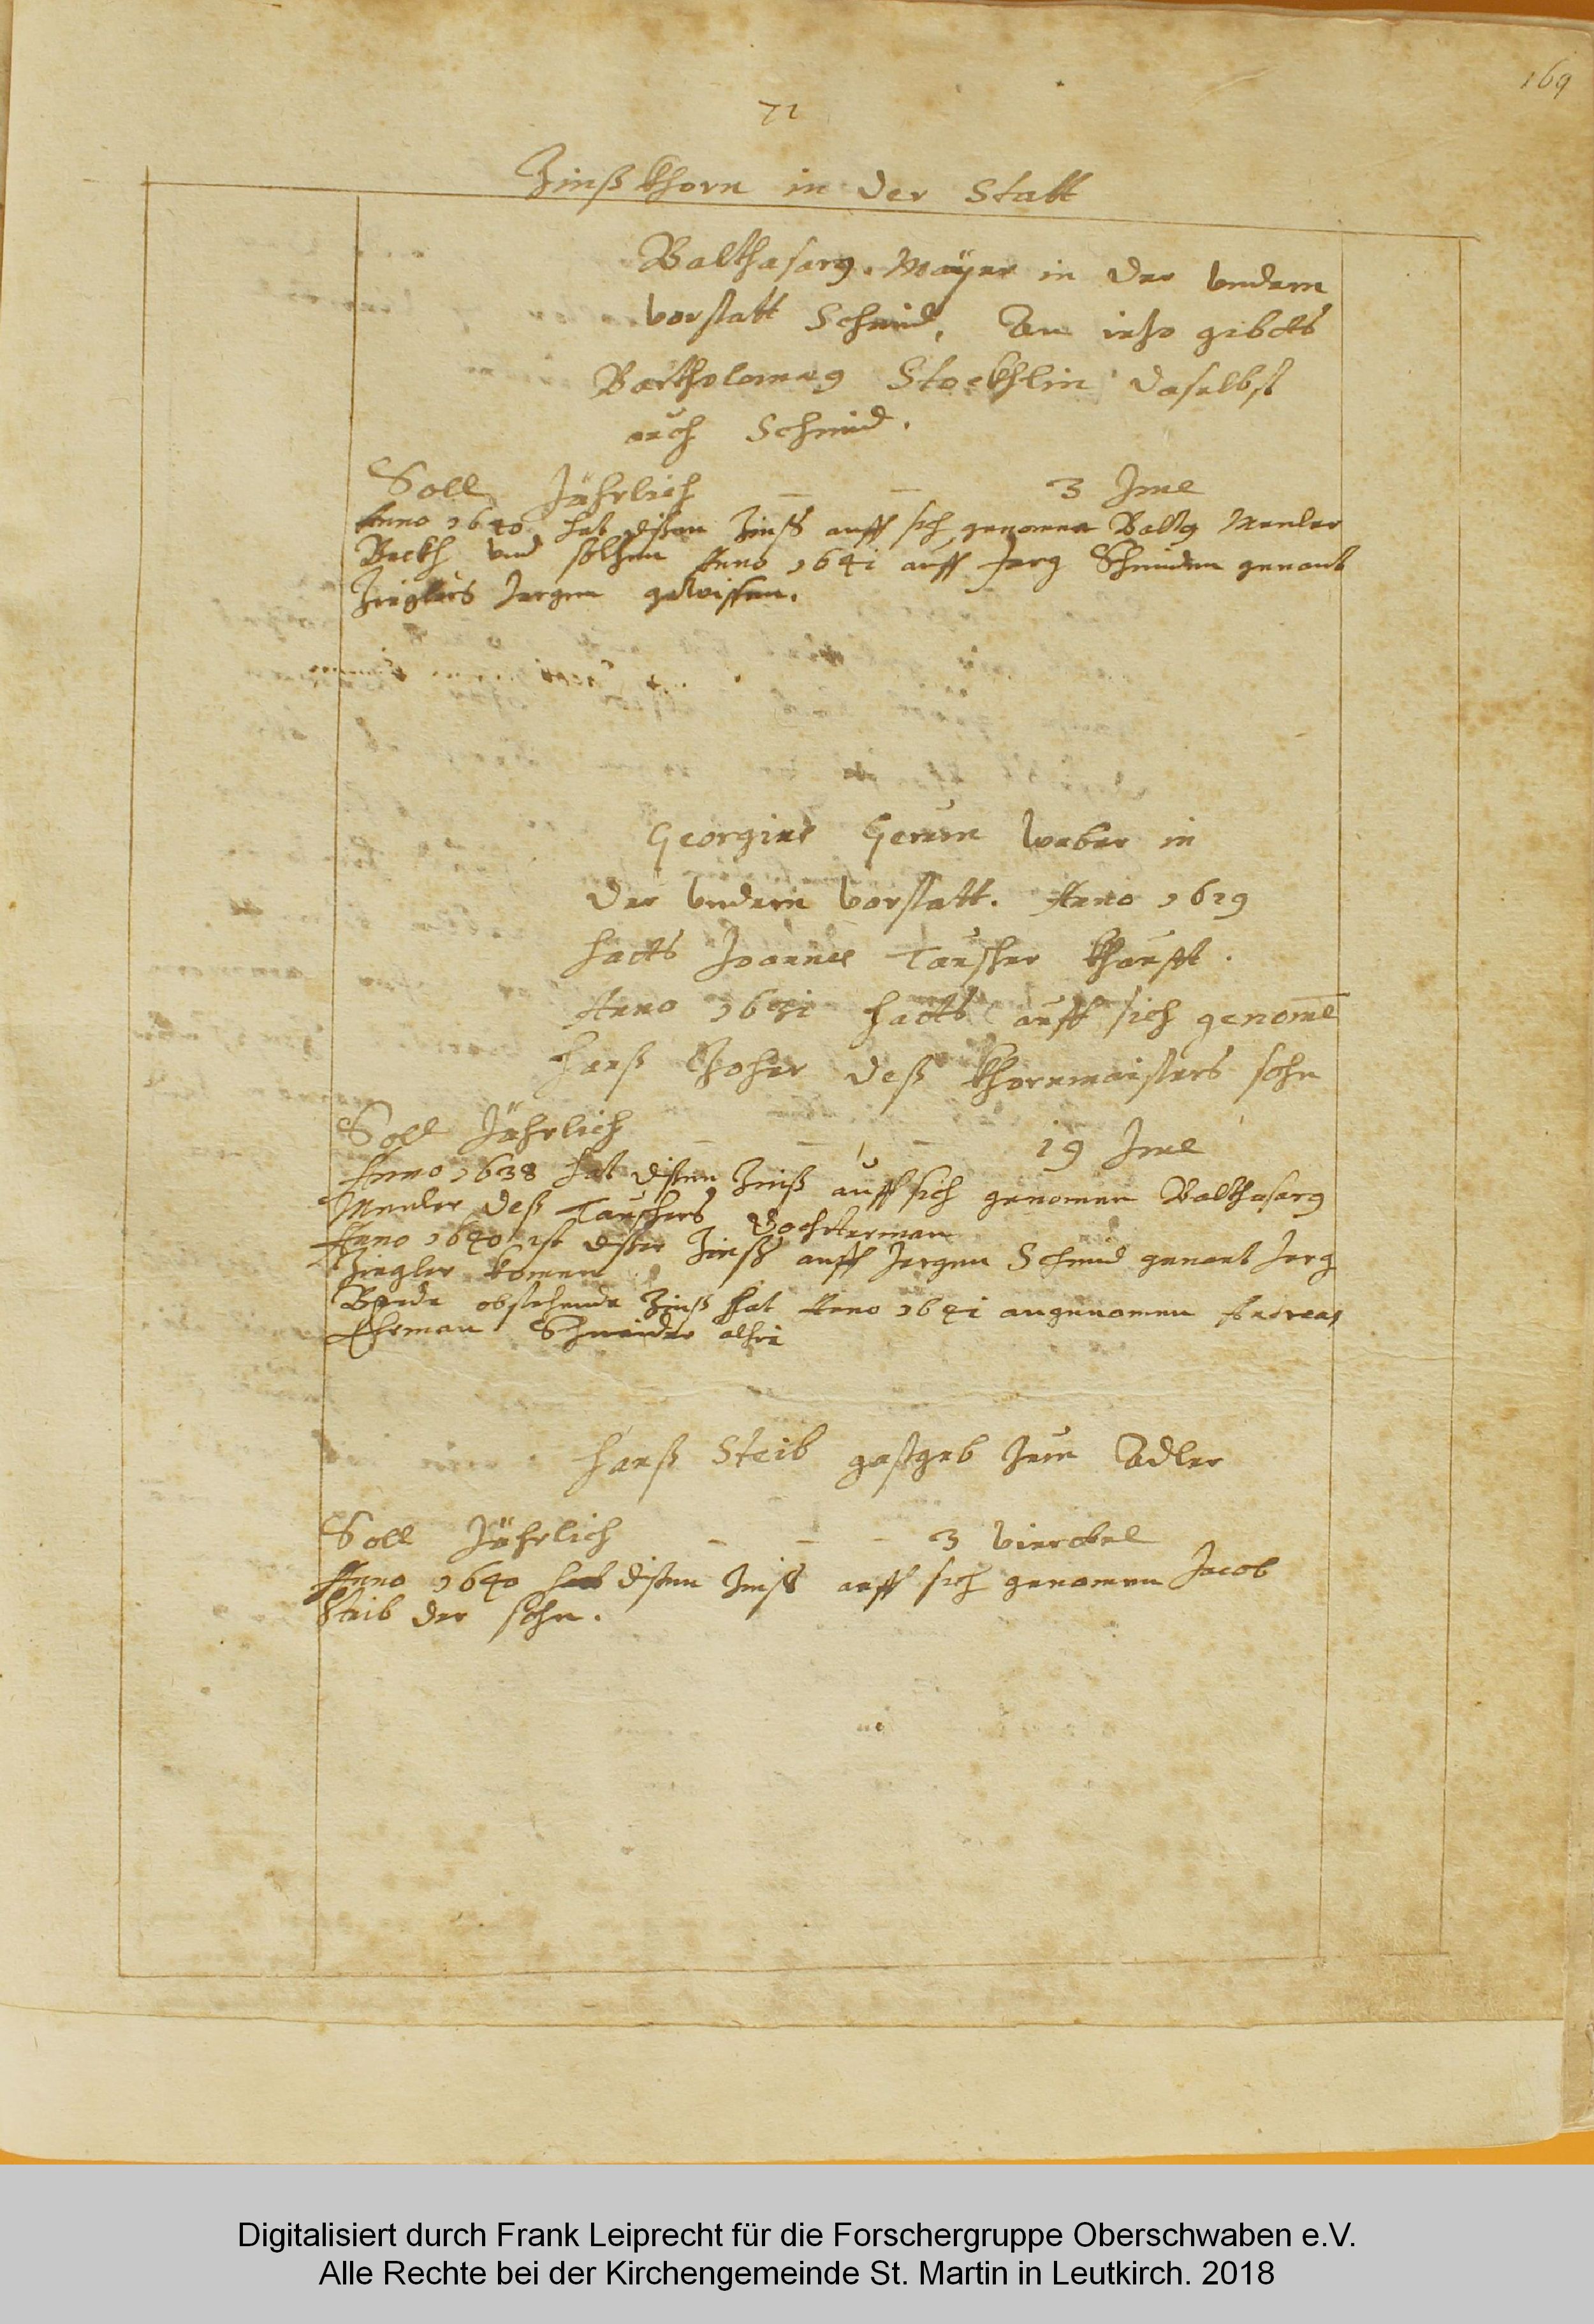 169
71
Zinßkhorn in der Statt
Balthasarg Mayer in der vndern
vorstatt Schmid, An ietzo gibts
Bartholomeg Stockhlin daselbst
auch Schmid.
Soll Jährlich — — 3 Jme
Anno 1640 hat disen Zinß auff sich genomen Baltg Menler
Beckh vnd solhen Anno 1641 auff Jerg Schmiden genant
Zieglers Jergen gewissen.
Georgius Gerum weber in
der vndern vorstatt. Anno 1619
hatts Joannes Tauscher khaufft.
Anno 1631 hatts auff sich genome
Hanß deß khornmaisters sohn
Soll Jährlich — — — 19 Jme
Anno 1638 hat disen Zinß auff sich genomen Balthasarg
Menler deß Tauschers Dochterman
Anno 1640 ist diser Zinß auff Jergen Schmid genant Jerg
Ziegler komen
Beede obstehende Zinß hat Anno 1641 angenomen Andreas
Ehrman Schneider alhie
Hanß Steib gastgeb zum Adler
Soll Jährlich — — — 3 viertel
Anno 1640 hat disen Zinß auff sich genomen Jacob
Steib der sohn.
Digitalisiert durch Frank Leiprecht für die Forschergruppe Oberschwaben e.V.
Alle Rechte bei der Kirchengemeinde St. Martin in Leutkirch. 2018